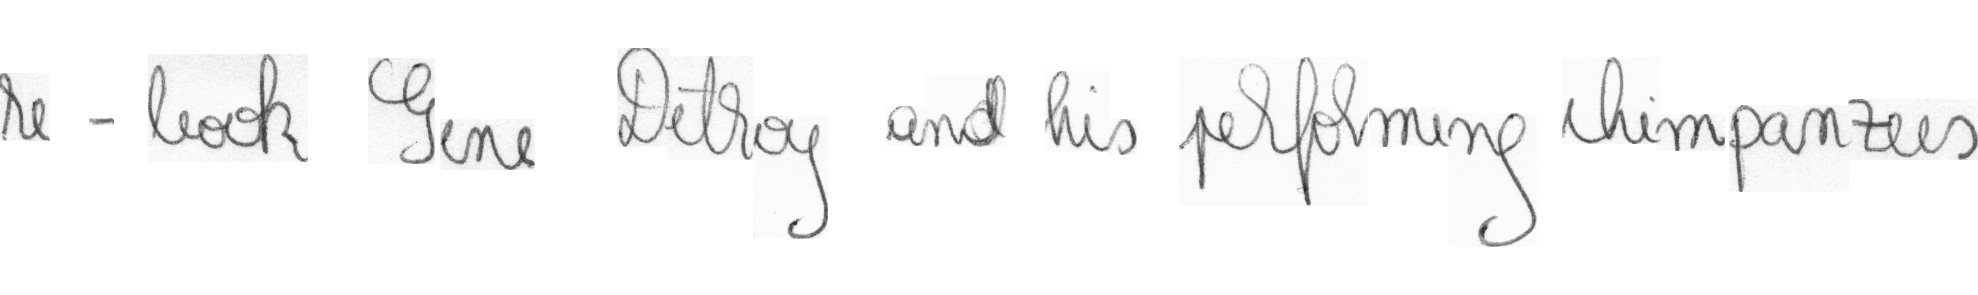 re - book Gene Detroy and his performing chimpanzees